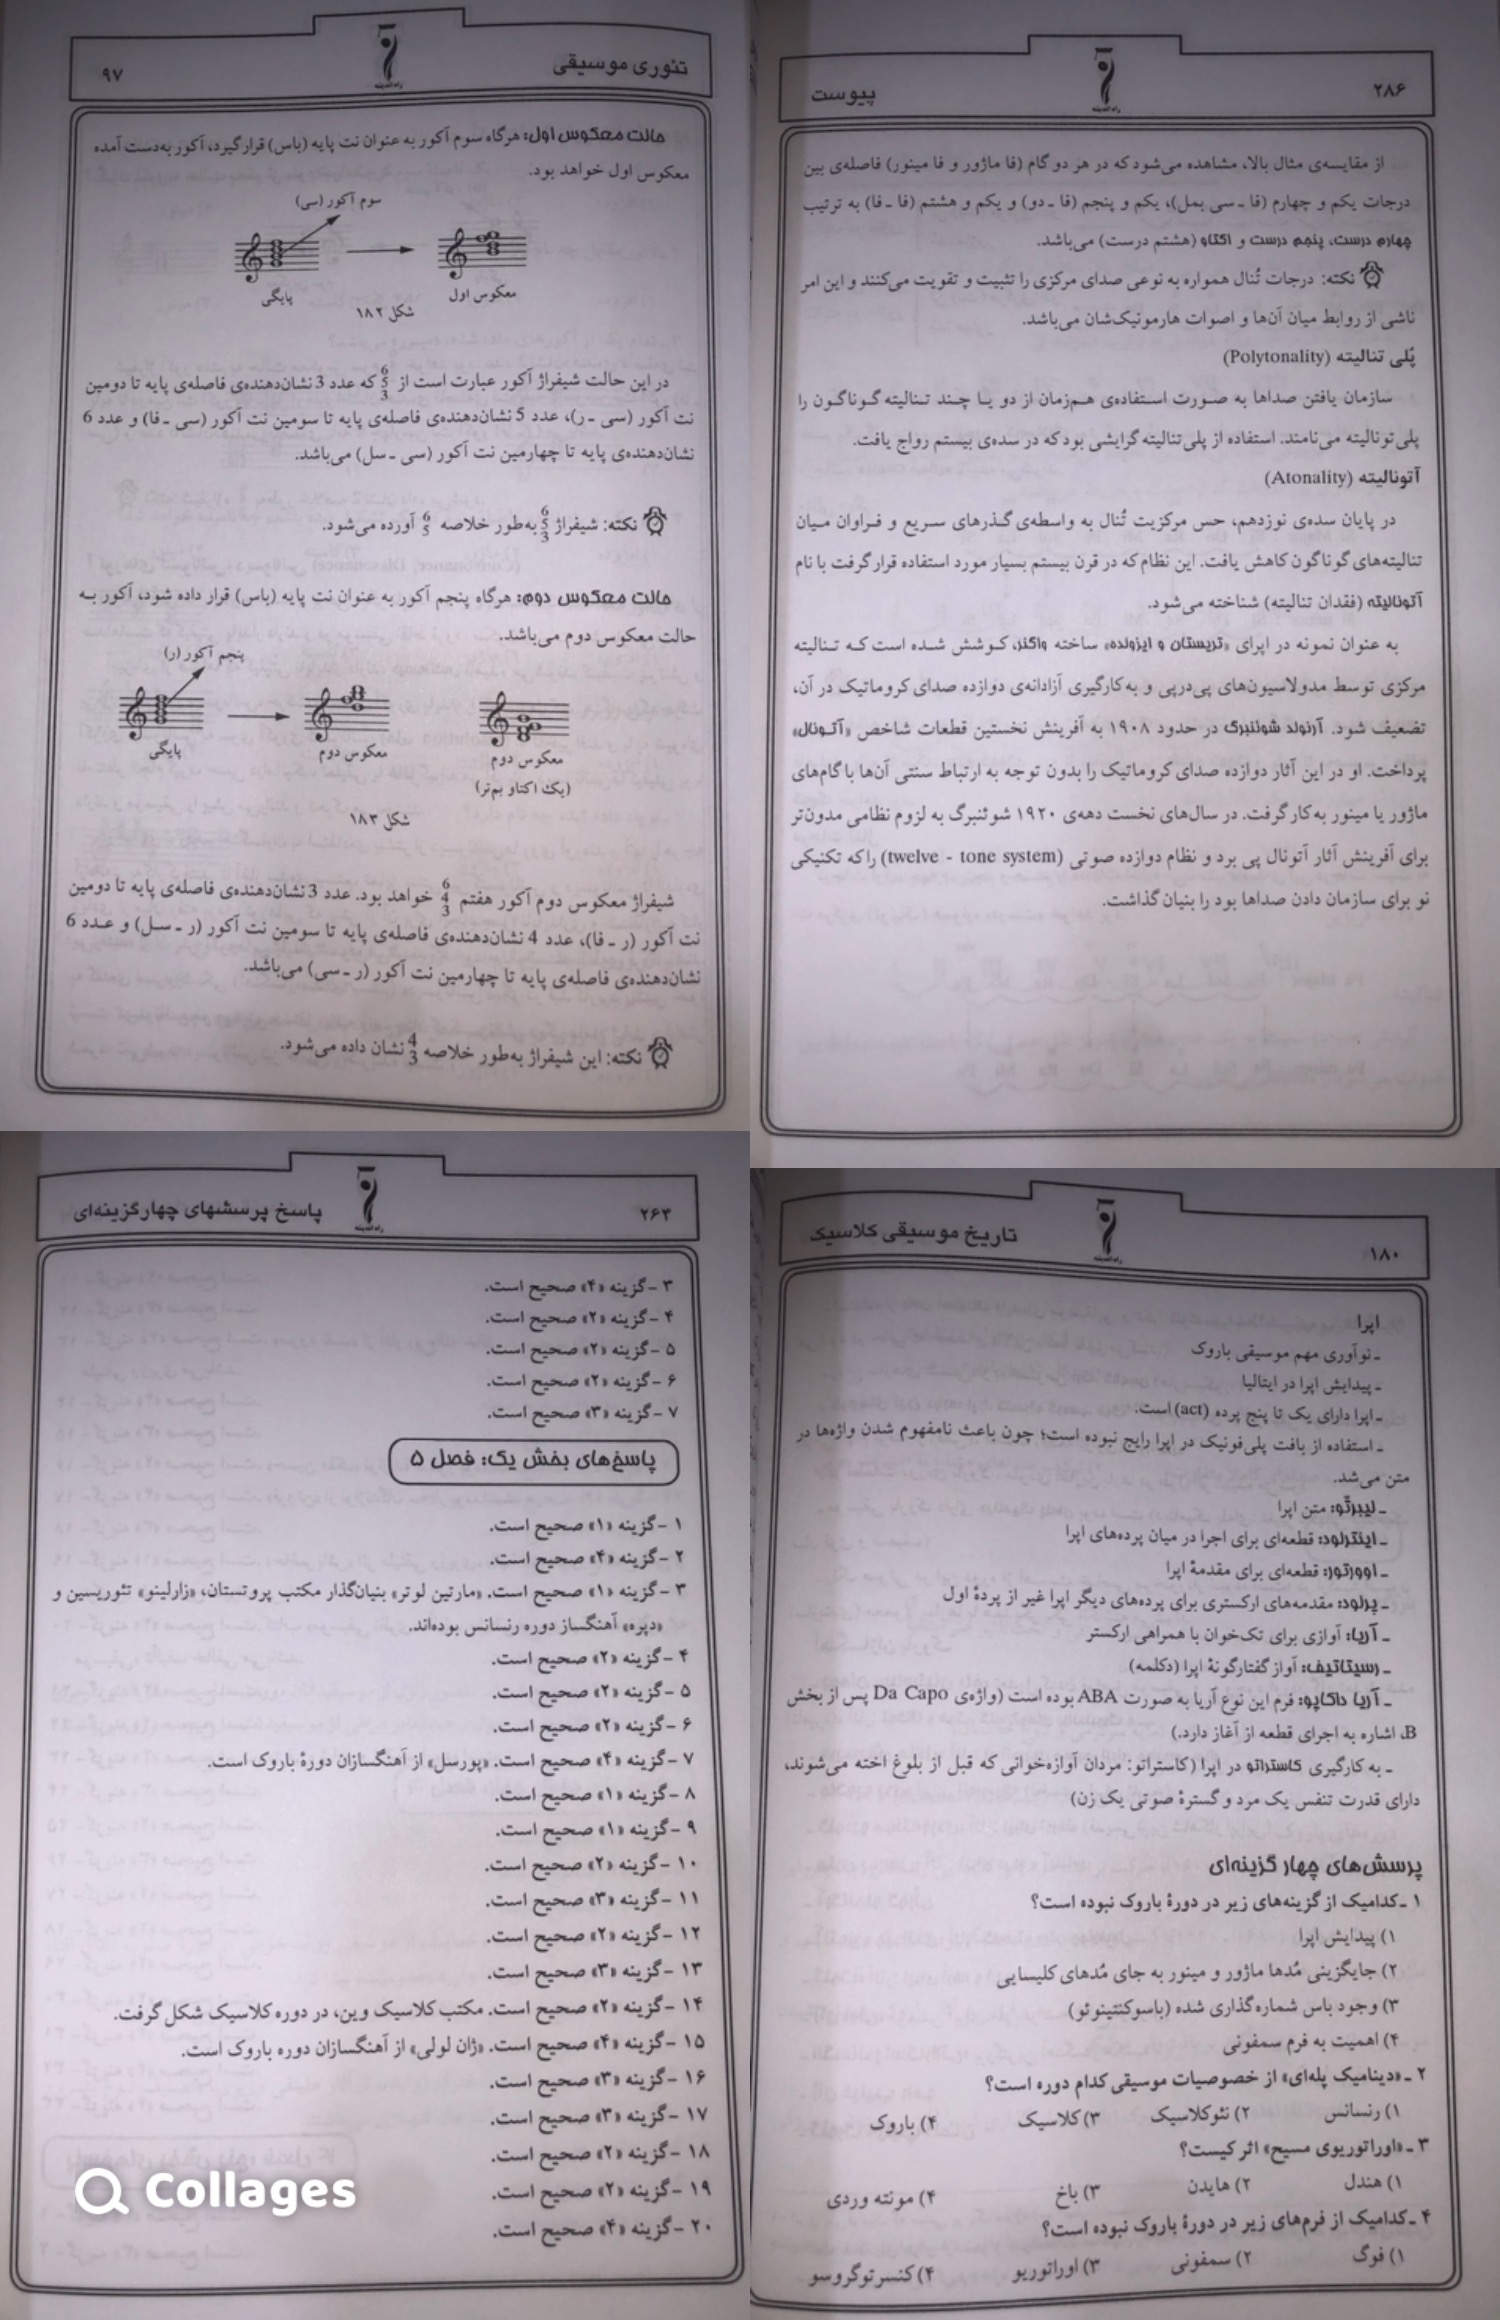 تئوری موسیقی
۹۷
حالت معکوس اول: هرگاه سوم آکور به عنوان نت پایه (باس) قرار گیرد، آکور به‌دست آمده
معکوس اول خواهد بود.
سوم آکور (سی)
پایگی
معکوس اول
شکل ۱۸۲
در این حالت شیفراژ آکور عبارت است از 6 5 3 که عدد 3 نشان‌دهنده‌ی فاصله‌ی پایه تا دومین
نت آکور (سی ـ ر)، عدد 5 نشان‌دهنده‌ی فاصله‌ی پایه تا سومین نت آکور (سی ـ فا) و عدد 6
نشان‌دهنده‌ی پایه تا چهارمین نت آکور (سی ـ سل) می‌باشد.
نکته: شیفراژ 6 5 3 به‌طور خلاصه 6 5 آورده می‌شود.
حالت معکوس دوم: هرگاه پنجم آکور به عنوان نت پایه (باس) قرار داده شود، آکور به
حالت معکوس دوم می‌باشد.
پنجم آکور (ر)
پایگی
معکوس دوم
معکوس دوم
(یک اکتاو بم‌تر)
شکل ۱۸۳
شیفراژ معکوس دوم آکور هفتم 6 4 3 خواهد بود. عدد 3 نشان‌دهنده‌ی فاصله‌ی پایه تا دومین
نت آکور (ر ـ فا)، عدد 4 نشان‌دهنده‌ی فاصله‌ی پایه تا سومین نت آکور (ر ـ سل) و عدد 6
نشان‌دهنده‌ی فاصله‌ی پایه تا چهارمین نت آکور (ر ـ سی) می‌باشد.
نکته: این شیفراژ به‌طور خلاصه 4 3 نشان داده می‌شود.
۲۸۶
راه اندیشه
پیوست
از مقایسه‌ی مثال بالا، مشاهده می‌شود که در هر دو گام (فا ماژور و فا مینور) فاصله‌ی بین
درجات یکم و چهارم (فا ـ سی بمل)، یکم و پنجم (فا ـ دو) و یکم و هشتم (فا ـ فا) به ترتیب
چهارم درست، پنجم درست و اکتاو (هشتم درست) می‌باشد.
نکته: درجات تُنال همواره به نوعی صدای مرکزی را تثبیت و تقویت می‌کنند و این امر
ناشی از روابط میان آن‌ها و اصوات هارمونیک‌شان می‌باشد.
پُلی تنالیته (Polytonality)
سازمان یافتن صداها به صورت استفاده‌ی هم‌زمان از دو یا چند تنالیته گوناگون را
پلی‌تونالیته می‌نامند. استفاده از پلی‌تنالیته گرایشی بود که در سده‌ی بیستم رواج یافت.
آتونالیته (Atonality)
در پایان سده‌ی نوزدهم، حس مرکزیت تُنال به واسطه‌ی گذرهای سریع و فراوان میان
تنالیته‌های گوناگون کاهش یافت. این نظام که در قرن بیستم بسیار مورد استفاده قرار گرفت با نام
آتونالیته (فقدان تنالیته) شناخته می‌شود.
به عنوان نمونه در اپرای «تریستان و ایزولده» ساخته واگنر، کوشش شده است که تنالیته
مرکزی توسط مدولاسیون‌های پی‌درپی و به‌کارگیری آزادانه‌ی دوازده صدای کروماتیک در آن،
تضعیف شود. آرنولد شوئنبرگ در حدود ۱۹۰۸ به آفرینش نخستین قطعات شاخص «آتونال»
پرداخت. او در این آثار دوازده صدای کروماتیک را بدون توجه به ارتباط سنتی آن‌ها با گام‌های
ماژور یا مینور به‌کار گرفت. در سال‌های نخست دهه‌ی ۱۹۲۰ شوئنبرگ به لزوم نظامی مدون‌تر
برای آفرینش آثار آتونال پی برد و نظام دوازده صوتی (twelve - tone system) را که تکنیکی
نو برای سازمان دادن صداها بود را بنیان گذاشت.
۲۶۴
راه اندیشه
پاسخ پرسشهای چهارگزینه‌ای
۳ -گزینه «۴» صحیح است.
۴ -گزینه «۲» صحیح است.
۵ -گزینه «۲» صحیح است.
۶ -گزینه «۲» صحیح است.
۷ -گزینه «۳» صحیح است.
پاسخ‌های بخش یک: فصل ۵
۱ -گزینه «۱» صحیح است.
۲ -گزینه «۴» صحیح است.
۳ -گزینه «۱» صحیح است. «مارتین لوتر» بنیان‌گذار مکتب پروتستان، «زارلینو» تئوریسین و
«دپره» آهنگساز دوره رنسانس بوده‌اند.
۴ -گزینه «۲» صحیح است.
۵ -گزینه «۲» صحیح است.
۶ -گزینه «۲» صحیح است.
۷ -گزینه «۴» صحیح است. «پورسل» از آهنگسازان دورهٔ باروک است.
۸ -گزینه «۱» صحیح است.
۹ -گزینه «۱» صحیح است.
۱۰ -گزینه «۲» صحیح است.
۱۱ -گزینه «۳» صحیح است.
۱۲ -گزینه «۲» صحیح است.
۱۳ -گزینه «۳» صحیح است.
۱۴ -گزینه «۲» صحیح است. مکتب کلاسیک وین، در دوره کلاسیک شکل گرفت.
۱۵ -گزینه «۴» صحیح است. «ژان لولی» از آهنگسازان دوره باروک است.
۱۶ -گزینه «۳» صحیح است.
۱۷ -گزینه «۳» صحیح است.
۱۸ -گزینه «۲» صحیح است.
۱۹ -گزینه «۲» صحیح است.
۲۰ -گزینه «۴» صحیح است.
Collages
۱۸۰
تاریخ موسیقی کلاسیک
اپرا
ـ نوآوری مهم موسیقی باروک
ـ پیدایش اپرا در ایتالیا
ـ اپرا دارای یک تا پنج پرده (act) است.
ـ استفاده از بافت پلی‌فونیک در اپرا رایج نبوده است؛ چون باعث نامفهوم شدن واژه‌ها در
متن می‌شد.
ـ لیبرتّو: متن اپرا
ـ اینترلود: قطعه‌ای برای اجرا در میان پرده‌های اپرا
ـ اوورتور: قطعه‌ای برای مقدمهٔ اپرا
ـ پرلود: مقدمه‌های ارکستری برای پرده‌های دیگر اپرا غیر از پردهٔ اول
ـ آریا: آوازی برای تک‌خوان با همراهی ارکستر
ـ رسیتاتیف: آواز گفتارگونهٔ اپرا (دکلمه)
ـ آریا داکاپو: فرم این نوع آریا به صورت ABA بوده است (واژه‌ی Da Capo پس از بخش
B، اشاره به اجرای قطعه از آغاز دارد.)
ـ به کارگیری کاستراتو در اپرا (کاستراتو: مردان آوازه‌خوانی که قبل از بلوغ اخته می‌شوند،
دارای قدرت تنفس یک مرد و گسترهٔ صوتی یک زن)
پرسش‌های چهار گزینه‌ای
۱ ـ کدامیک از گزینه‌های زیر در دورهٔ باروک نبوده است؟
۱) پیدایش اپرا
۲) جایگزینی مُدها ماژور و مینور به جای مُدهای کلیسایی
۳) وجود باس شماره‌گذاری شده (باسوکنتینوئو)
۴) اهمیت به فرم سمفونی
۲ ـ «دینامیک پله‌ای» از خصوصیات موسیقی کدام دوره است؟
۱) رنسانس ۲) نئوکلاسیک ۳) کلاسیک ۴) باروک
۳ ـ «اوراتوریوی مسیح» اثر کیست؟
۱) هندل ۲) هایدن ۳) باخ ۴) مونته وردی
۴ ـ کدامیک از فرم‌های زیر در دورهٔ باروک نبوده است؟
۱) فوگ ۲) سمفونی ۳) اوراتوریو ۴) کنسرتوگروسو